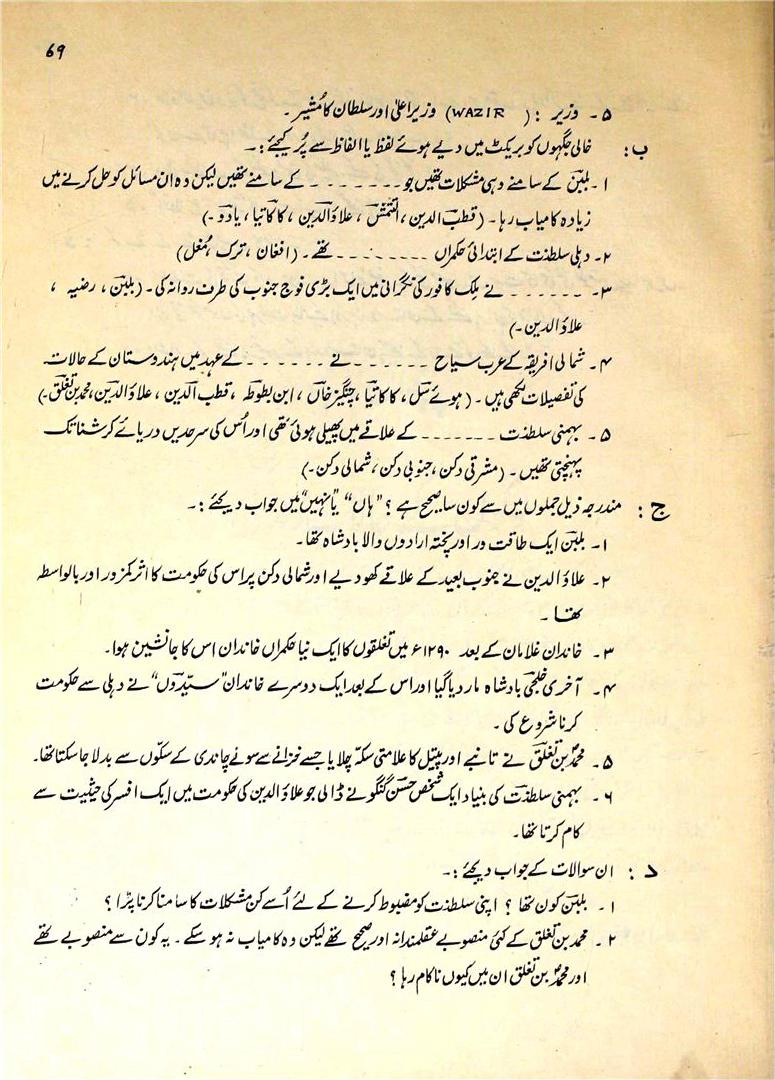 69
۵ ۔ وزیر : ( WAZIR) وزیر اعلیٰ اور سلطان کا مُشیر ۔
ب : خالی جگہوں کو بریکٹ میں دیے ہوئے لفظ یا الفاظ سے پُر کیجئے :۔
۱ ۔ بلبن کے سامنے وہی مشکلات تھیں جو ۔ ۔ ۔ ۔ ۔ ۔ ۔ کے سامنے تھیں لیکن وہ ان مسائل کو حل کرنے میں
زیادہ کامیاب رہا ۔ ( قطب الدین ، التمش ، علاؤالدین ، کاکاتیا ، یادو ۔)
۲ ۔ دہلی سلطنت کے ابتدائی حکمراں ۔ ۔ ۔ ۔ ۔ ۔ ۔ تھے ۔ ( افغان ، ترک ، مُغل )
۳ ۔ ۔ ۔ ۔ ۔ ۔ ۔ نے ملک کافور کی نگرانی میں ایک بڑی فوج جنوب کی طرف روانہ کی ۔ ( بلبن ، رضیہ ،
علاؤ الدین ۔)
۴ ۔ شمالی افریقہ کے عرب سیاح ۔ ۔ ۔ ۔ ۔ ۔ نے ۔ ۔ ۔ ۔ ۔ ۔ کے عہد میں ہندوستان کے حالات
کی تفصیلات لکھی ہیں ۔ ( ہوئے سَل ، کاکاتیا ، چنگیز خاں ، ابن بطوطہ ، قطب الدین ، علاؤ الدین ، محمد بن تغلق ۔)
۵ ۔ بہمنی سلطنت ۔ ۔ ۔ ۔ ۔ ۔ ۔ کے علاقے میں پھیلی ہوئی تھی اور اُس کی سرحدیں دریائے کرشنا تک
پہنچتی تھیں ۔ ( مشرقی دکن ، جنوبی دکن ، شمالی دکن ۔)
ج : مندرجہ ذیل جملوں میں سے کون سا صحیح ہے ؟ "ہاں" یا "نہیں" میں جواب دیجئے :۔
۱ ۔ بلبن ایک طاقت ور اور پختہ ارادوں والا بادشاہ تھا ۔
۲ ۔ علاؤ الدین نے جنوب بعید کے علاقے کھو دیے اور شمالی دکن پر اس کی حکومت کا اثر کمزور اور بالواسطہ
تھا ۔
۳ ۔ خاندان غلامان کے بعد ۱۲۹۰ء میں تغلقوں کا ایک نیا حکمراں خاندان اس کا جانشین ہوا ۔
۴ ۔ آخری خلجی بادشاہ مار دیا گیا اور اس کے بعد ایک دوسرے خاندان "سیّدوں" نے دہلی سے حکومت
کرنا شروع کی ۔
۵ ۔ محمدؐ بن تغلق نے تانبے اور پیتل کا علامتی سکہ چلایا جسے خزانے سے سونے چاندی کے سکّوں سے بدلا جا سکتا تھا ۔
۶ ۔ بہمنی سلطنت کی بنیاد ایک شخص حسن گنگو نے ڈالی جو علاؤ الدین کی حکومت میں ایک افسر کی حیثیت سے
کام کرتا تھا ۔
د : ان سوالات کے جواب دیجئے :۔
۱ ۔ بلبن کون تھا ؟ اپنی سلطنت کو مضبوط کرنے کے لئے اُسے کن مشکلات کا سامنا کرنا پڑا ؟
۲ ۔ محمد بن تغلق کے کئی منصوبے عقلمندانہ اور صحیح تھے لیکن وہ کامیاب نہ ہو سکے ۔ یہ کون سے منصوبے تھے
اور محمدؐ بن تغلق ان میں کیوں ناکام رہا ؟